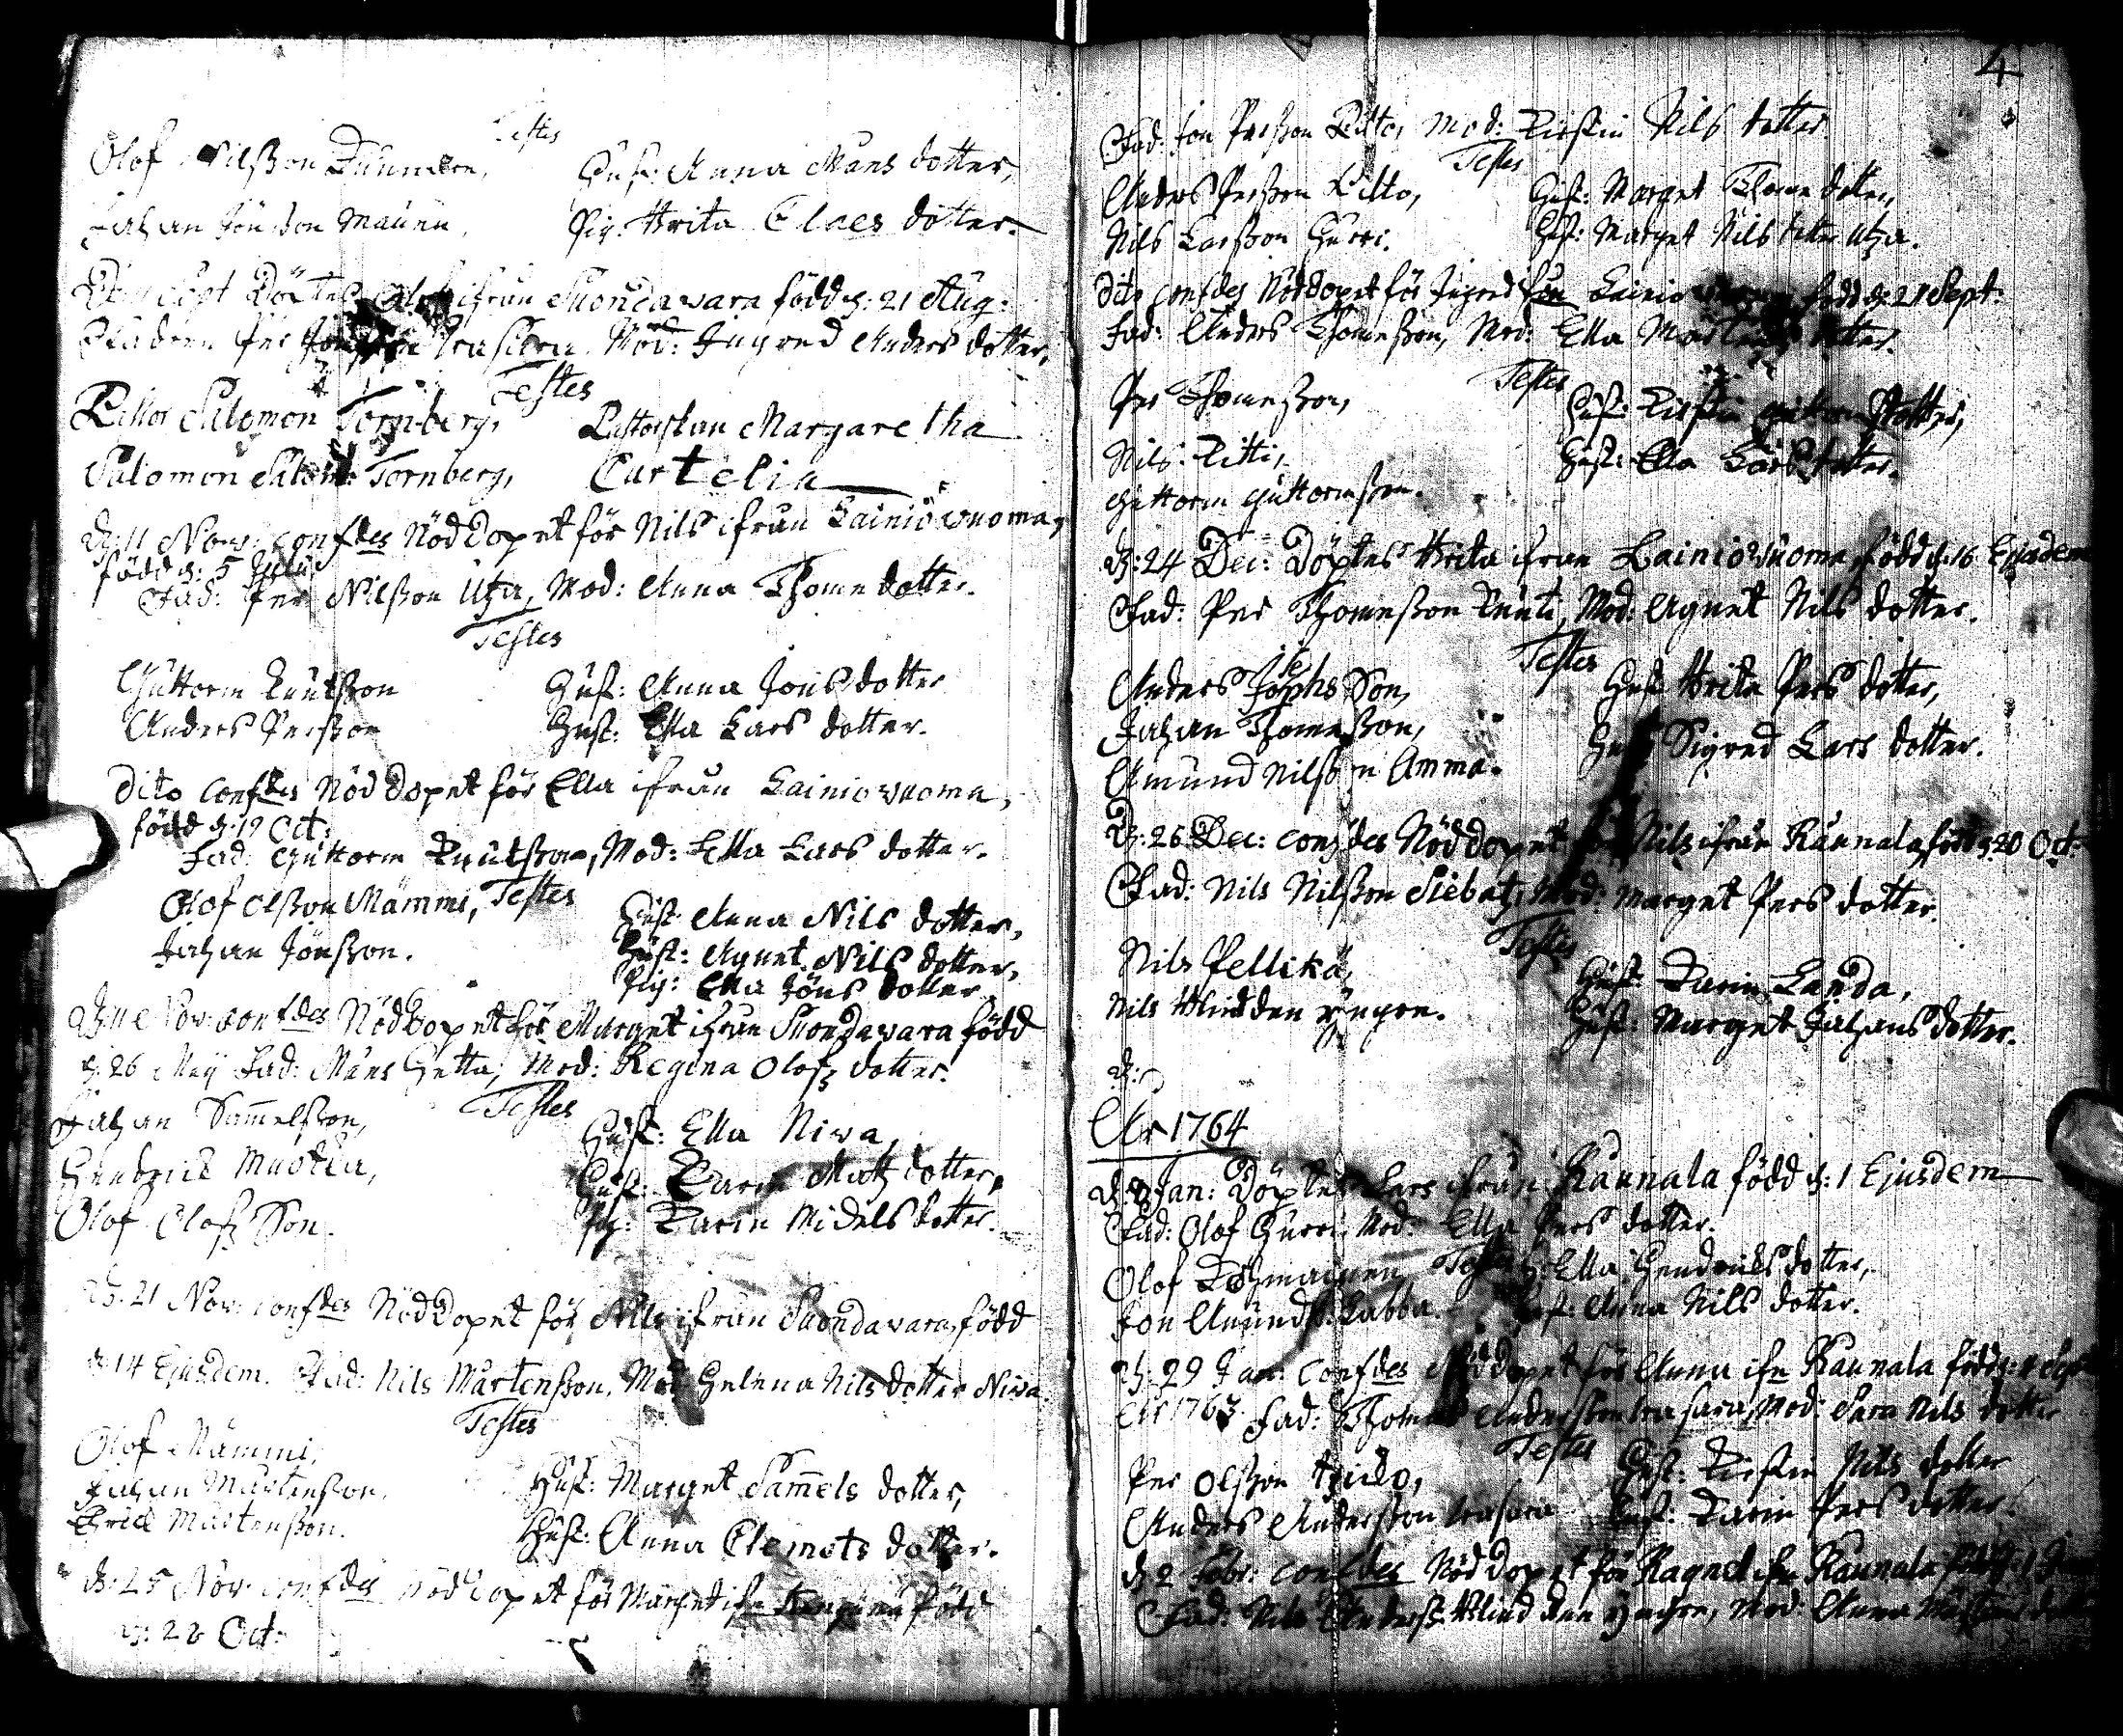 Testes
Olof Nilsson Hust: Anna Måns dotter,
Johan Jönsson Maunu, Pig: Brita Claes dotter.
Sept Döptes Olof ifrån Suondavara född d: 21 Aug:
Fadren Per Mod: Ingred Anders dotter,
Testes
Pastor Salomon Tornberg, Pastorskan Margaretha
Salomon Salom: Tornberg, Curtelia
d: 11 Nov: confdes Nöddopet för Nils ifrån Lainiowuoma,
född d: 5 Julii
Fad: Per Nilsson Utza, Mod: Anna Thome dotter.
Testes
Guttorm Knutsson Hust: Anna Jöns dotter
Anders Persson Hust: Ella Lars dotter.
Dito confdes Nöddopet för Ella ifrån Lainiowuoma,
född d: 19 Oct:
Fad: Guttorm Knutsson, Mod: Ella Lars dotter.
Testes
Olof Olsson Mämmi, Hust: Anna Nils dotter,
Johan Jönsson. Hust: Agnet Nils dotter,
Pig: Ella Jöns dotter
d: 11 Nov: confdes Nöddopet för Marget ifrån Suondavara född
d: 26 Maij Fad: Måns Hetta, Mod: Regina Olofs dotter.
Testes
Johan Sammelsson, Hust: Ella Niva,
Hendrick Muotka, Hust: Karin Matz dotter,
Olof Olofs Son. Pig: Karin Michels dotter.
d: 21 Nov: confdes Nöddopet för Nils ifrån Suondavara, född
d: 14 Ejusdem. Fad: Nils Mårtensson, Mod: Helena Nils dotter Niva.
Testes
Olof Mämmi,
Johan Mårtensson, Hust: Marget Sammels dotter,
Erick Mårtensson. Hust: Anna Clemets dotter.
d: 25 Nov: confdes Nöddopet för Marget ifn född
d: 28 Oct:
4
Fad: Jon Persson Kitto, Mod: Kirstin Nils dotter
Testes
Anders Persson Kitto, Hust: Marget Thome dotter,
Nils Larsson Hurri. Hust: Marget Nils dotter Utza.
Dito confdes Nöddopet för Ingred ifrån Lainio född d: 21 Sept:
Fad: Anders Thomesson, Mod: Ella Mårtens dotter.
Testes
Per Thomesson, Hust: Kirstin Guttorms dotter,
Nils Kitti, Hust: Ella Lars dotter.
Guttorm Guttormsson.
d: 24 Dec: Döptes Brita ifrån Lainiowuoma, född d: 16 Ejusdem
Fad: Per Thomesson Knuti, Mod: Agnet Nils dotter.
Testes
Anders Josephs Son, Hust: Brita Pers dotter,
Johan Thomesson, Hust: Sigred Lars dotter.
Amund Nilsson Omma.
d: 26 Dec: confdes Nöddopet för Nils ifrån Raunala, född d: 20 Oct:
Fad: Nils Nilsson Siebat, Mod: Marget Pers dotter.
Testes
Nils Pellika, Hust: Karin Landa,
Nils Blind den yngre. Hust: Marget Johans dotter.
d:
Ahr 1764
d: Jan: Döptes Lars ifrån Raunala född d: 1 Ejusdem
Fad: Olof Hurri, Mod: Ella Pers dotter.
Testes
Olof H: Ella Hendrichs dotter,
Jon Amunds: Labba. Hust: Anna Nils dotter.
d: 29 Jan: confdes Nöddopet för Anna ifn Raunala född
Ahr 1763. Fad: Thomas Andersson Mod: Sara Nils dotter
Testes
Per Olsson Hust: Kirstin Nils dotter
Anders Andersson Hust: Karin Pers dotter.
d: 2 Febr: confdes Nöddopet för Ragnel ifn Raunala
Fad: Nils Anderss: Blind den yngre, Mod: Anna